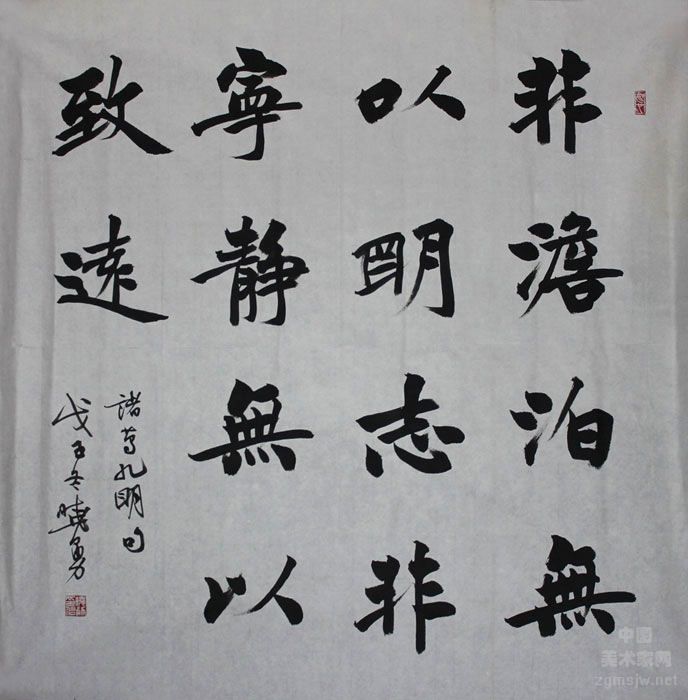 非澹泊無
以明志非
寧靜無以
致遠
諸葛孔明句
戊子冬曉勇
中国
美术家网
zgmsjw.net